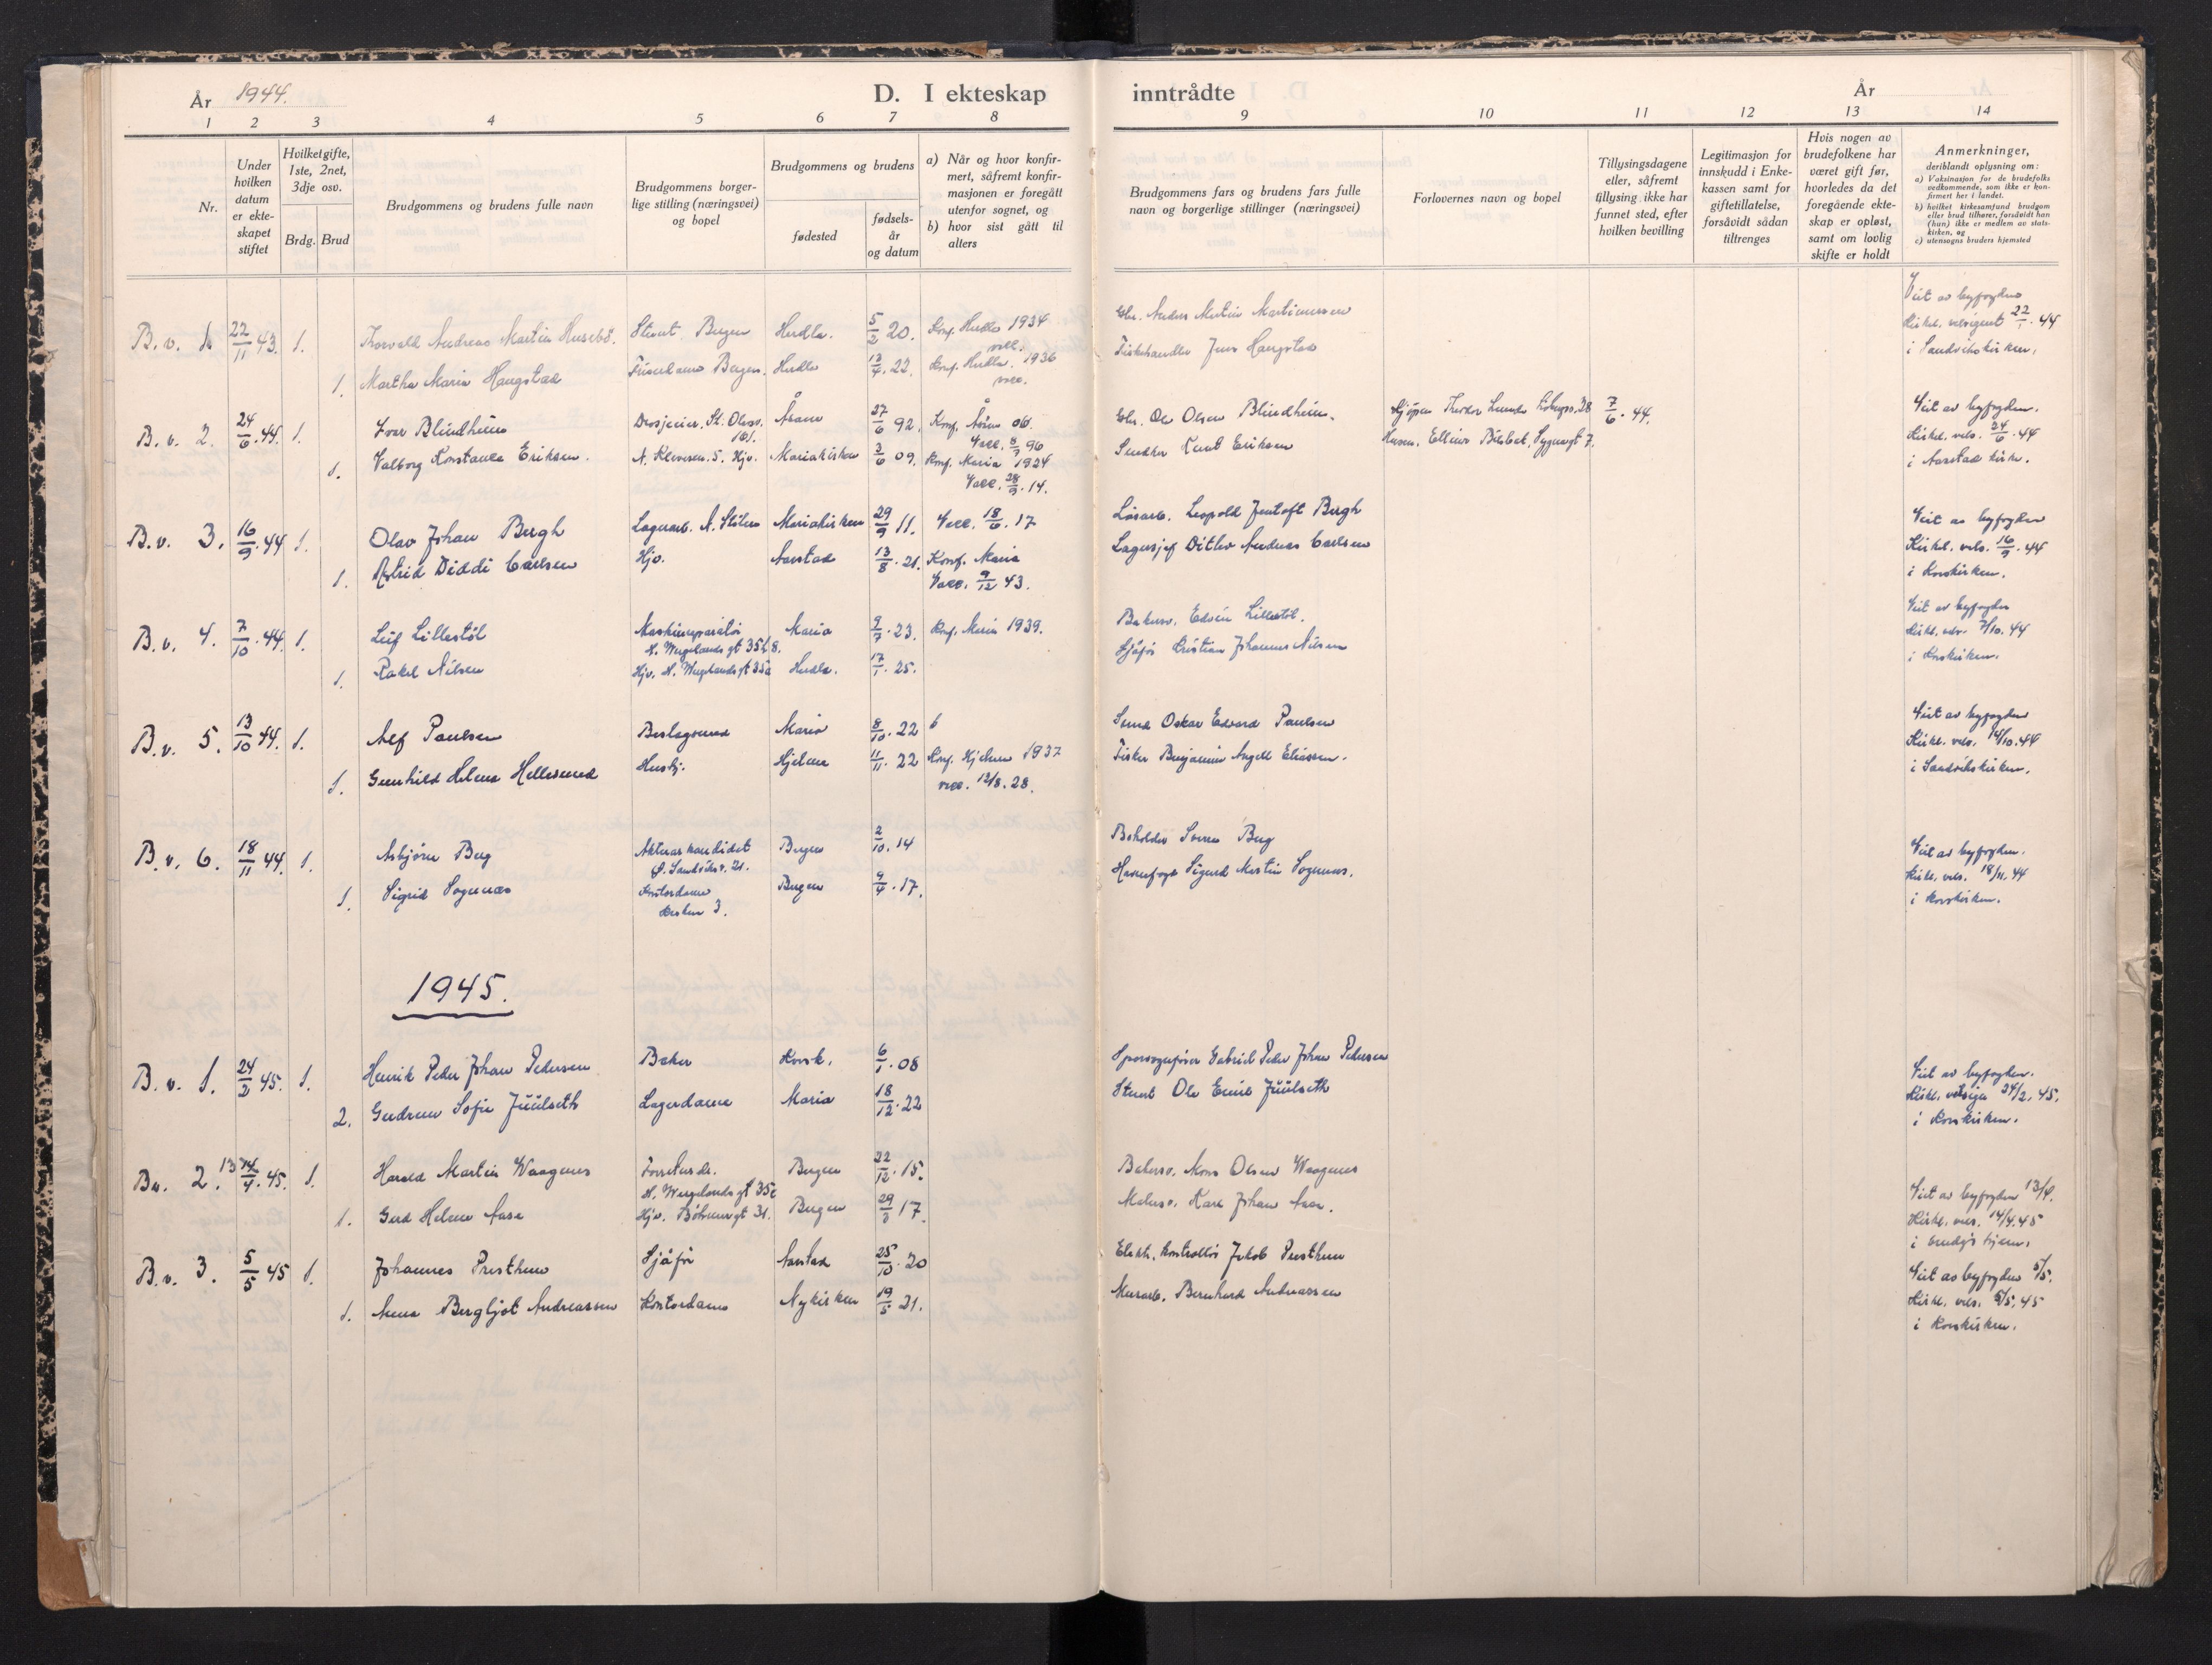 År 1944.
D. I ekteskap inntrådte
År
1 2 3 4 5 6 7 8 9 10 11 12 13 14
Nr.
Under hvilken datum er ekteskapet stiftet
Hvilket gifte, 1ste, 2net, 3dje osv.
Brdg. Brud
Brudgommens og brudens fulle navn
Brudgommens borgerlige stilling (næringsvei) og bopel
Brudgommens og brudens
fødested
fødselsår og datum
a) Når og hvor konfirmert, såfremt konfirmasjonen er foregått utenfor sognet, og
b) hvor sist gått til alters
Brudgommens fars og brudens fars fulle navn og borgerlige stillinger (næringsvei)
Forlovernes navn og bopel
Tillysingsdagene eller, såfremt tillysing ikke har funnet sted, efter hvilken bevilling
Legitimasjon for innskudd i Enkekassen samt for giftetillatelse, forsåvidt sådan tiltrenges
Hvis nogen av brudefolkene har været gift før, hvorledes da det foregående ekteskap er opløst, samt om lovlig skifte er holdt
Anmerkninger,
deriblandt oplysning om:
a) Vaksinasjon for de brudefolks vedkommende, som ikke er konfirmert her i landet.
b) hvilket kirkesamfund brudgom eller brud tilhører, forsåvidt han (hun) ikke er medlem av statskirken, og
c) utensogns bruders hjemsted
B.v. 1. 22/11 43. 1. Thorvald Andreas Martin Husebö. Stuert Bergen Herdla. 5/2 20. Konf. Herdla 1934 vacc. Gbr. Anders Martin Martinussen
1. Martha Maria Haugstad Frisørdame Bergen. Herdla 13/4. 22. Konf. Herdla. 1936 vacc. Fiskehandler Jens Haugstad
Viet av byfogden
Kirkel. velsignet 22/1. 44
i Sandvikskirken.
B.v. 2. 24/6.44. 1. Ivar Blindheim St. Olavsv. 161. Åsane 27/6 92. Konf. Åsane 06. Vacc. 8/9 96 Gbr. Ole Olsen Blindheim. 7/6. 44.
1. Valborg Konstance Eriksen. Hjv. Mariakirken 3/6 09. Konf. Maria 1924 Vacc. 28/9. 14. Snedker Knut Eriksen
Viet av byfogden.
Kirkel. vels. 24/6. 44
i Aarstad kirke.
B.v. 3. 16/9.44 1. Olav Johan Bergh Lagerarb. N. Stölen Mariakirken 29/9 11. Vacc. 18/6. 17 Løsarb. Leopold Jentoft Bergh
1. Astrid Diddi Carlsen Hjv. Aarstad 13/8. 21. Konf. Maria Vacc. 9/12 43. Lagersjef Ditlev Andreas Carlsen
Viet av byfogden
Kirkel. vels. 16/9. 44
i Korskirken.
B.v. 4. 7/10.44. 1. Leif Lillestöl Maskinreparatör H. Wergelands gt 35 b. Maria 9/7. 23. Konf. Maria 1939. Bakersv. Edvin Lillestöl.
1. Rakel Nilsen Hjv. H. Wergelands gt 35a Herdla. 17/1. 25. Sjåför Kristian Johannes Nilsen
Viet av byfogden
Kirkel. vels. 7/10. 44
i Korskirken.
B.v. 5. 13/10 44. 1. Alf Paulsen Maria 8/10. 22 Smed Oskar Edvard Paulsen
1. Gunhild Helene Hellesund Hushj. Hjelme 11/11. 22 Konf. Hjelme 1937 vacc. 12/8. 28. Fisker Benjamin Angell Eliassen.
Viet av byfogden
Kirkel. vels. 14/10.44
i Sandvikskirken.
B.v. 6. 18/11 44. 1. Asbjörn Berg Ø. Sandviksv. 21. Bergen 2/10. 14 Bokholder Sverre Berg
1. Sigrid Sognnæs Kontordame 3. Bergen 9/4. 17. Havnefogd Sigurd Martin Sognnæs.
Viet av byfogden.
Kirkel. vels. 18/11. 44
i Korskirken.
1945.
B.v. 1. 24/2 45. 1. Henrik Peder Johan Pedersen Baker Korsk. 6/1. 08 Sporvognfører Gabriel Peder Johan Pedersen
2. Gudrun Sofie Jüülseth Lagerdame Maria 18/12. 22 Stuert Ole Emil Jüülseth
Viet av byfogden.
Kirkel. velsign 24/2. 45.
i Korskirken.
Bv. 2. 13 14/4. 45. 1. Harald Martin Waagenes H. Wergelands gt 35c Bergen 22/12. 15. Bakersv. Mons Olsen Waagenes
1. Gerd Helene Aase Hjv. Bøhmergt 31. Bergen 29/3 17. Malersv. Karl Johan Aase.
Viet av byfogden 13/4.
Kirkel. vels. 14/4.45
i brudg's hjem.
B.v. 3. 5/5 45 1. Johannes Presthun Sjåför Aarstad 25/10. 20 Elektr. kontrollör Jakob Presthun
1. Anna Bergljot Andreassen Kontordame Nykirken 19/5 21. Murarb. Bernhard Andreassen
Viet av byfogden 5/5.
Kirkel. vels. 5/5. 45
i Korskirken.